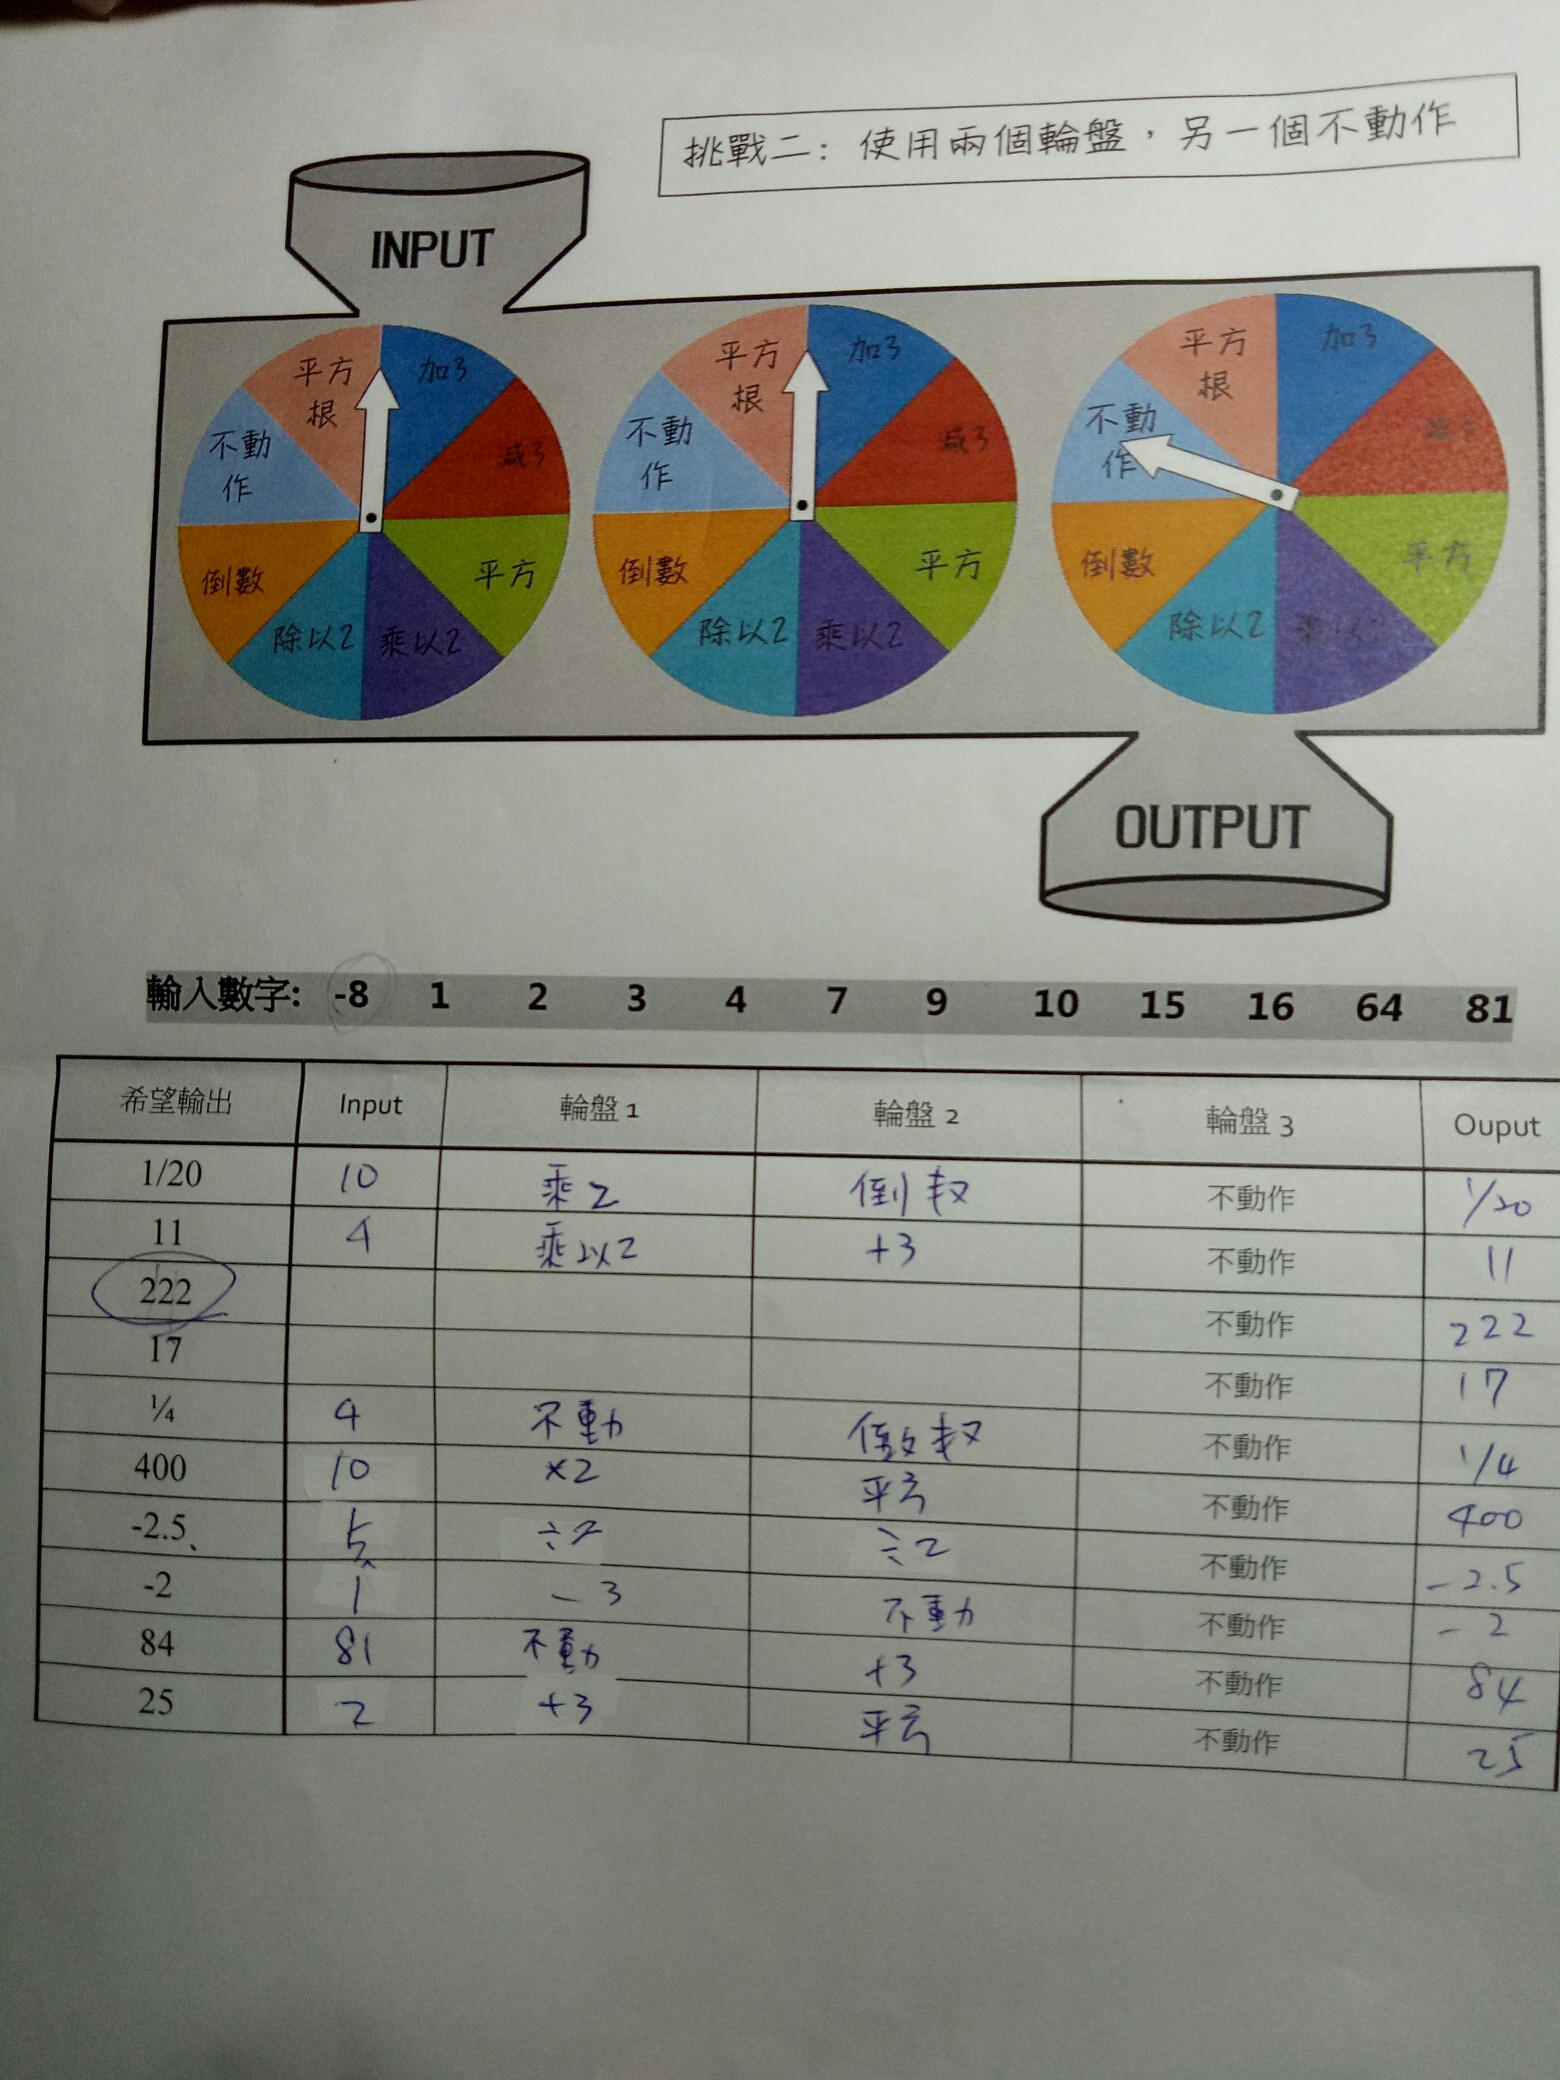 挑戰二: 使用兩個輪盤，另一個不動作
INPUT
平方根 加3 減3 平方 乘以2 除以2 倒數 不動作
平方根 加3 減3 平方 乘以2 除以2 倒數 不動作
平方根 加3 減3 平方 乘以2 除以2 倒數 不動作
OUTPUT
輸入數字: -8 1 2 3 4 7 9 10 15 16 64 81
希望輸出 Input 輪盤 1 輪盤 2 輪盤 3 Ouput
1/20 10 乘2 倒数 不動作 1/20
11 4 乘以2 +3 不動作 11
222 不動作 222
17 不動作 17
¼ 4 不動 倒数 不動作 1/4
400 10 ×2 平方 不動作 400
-2.5、 5 ÷2 ÷2 不動作 -2.5
-2 1 -3 不動 不動作 -2
84 81 不動 +3 不動作 84
25 2 +3 平方 不動作 25